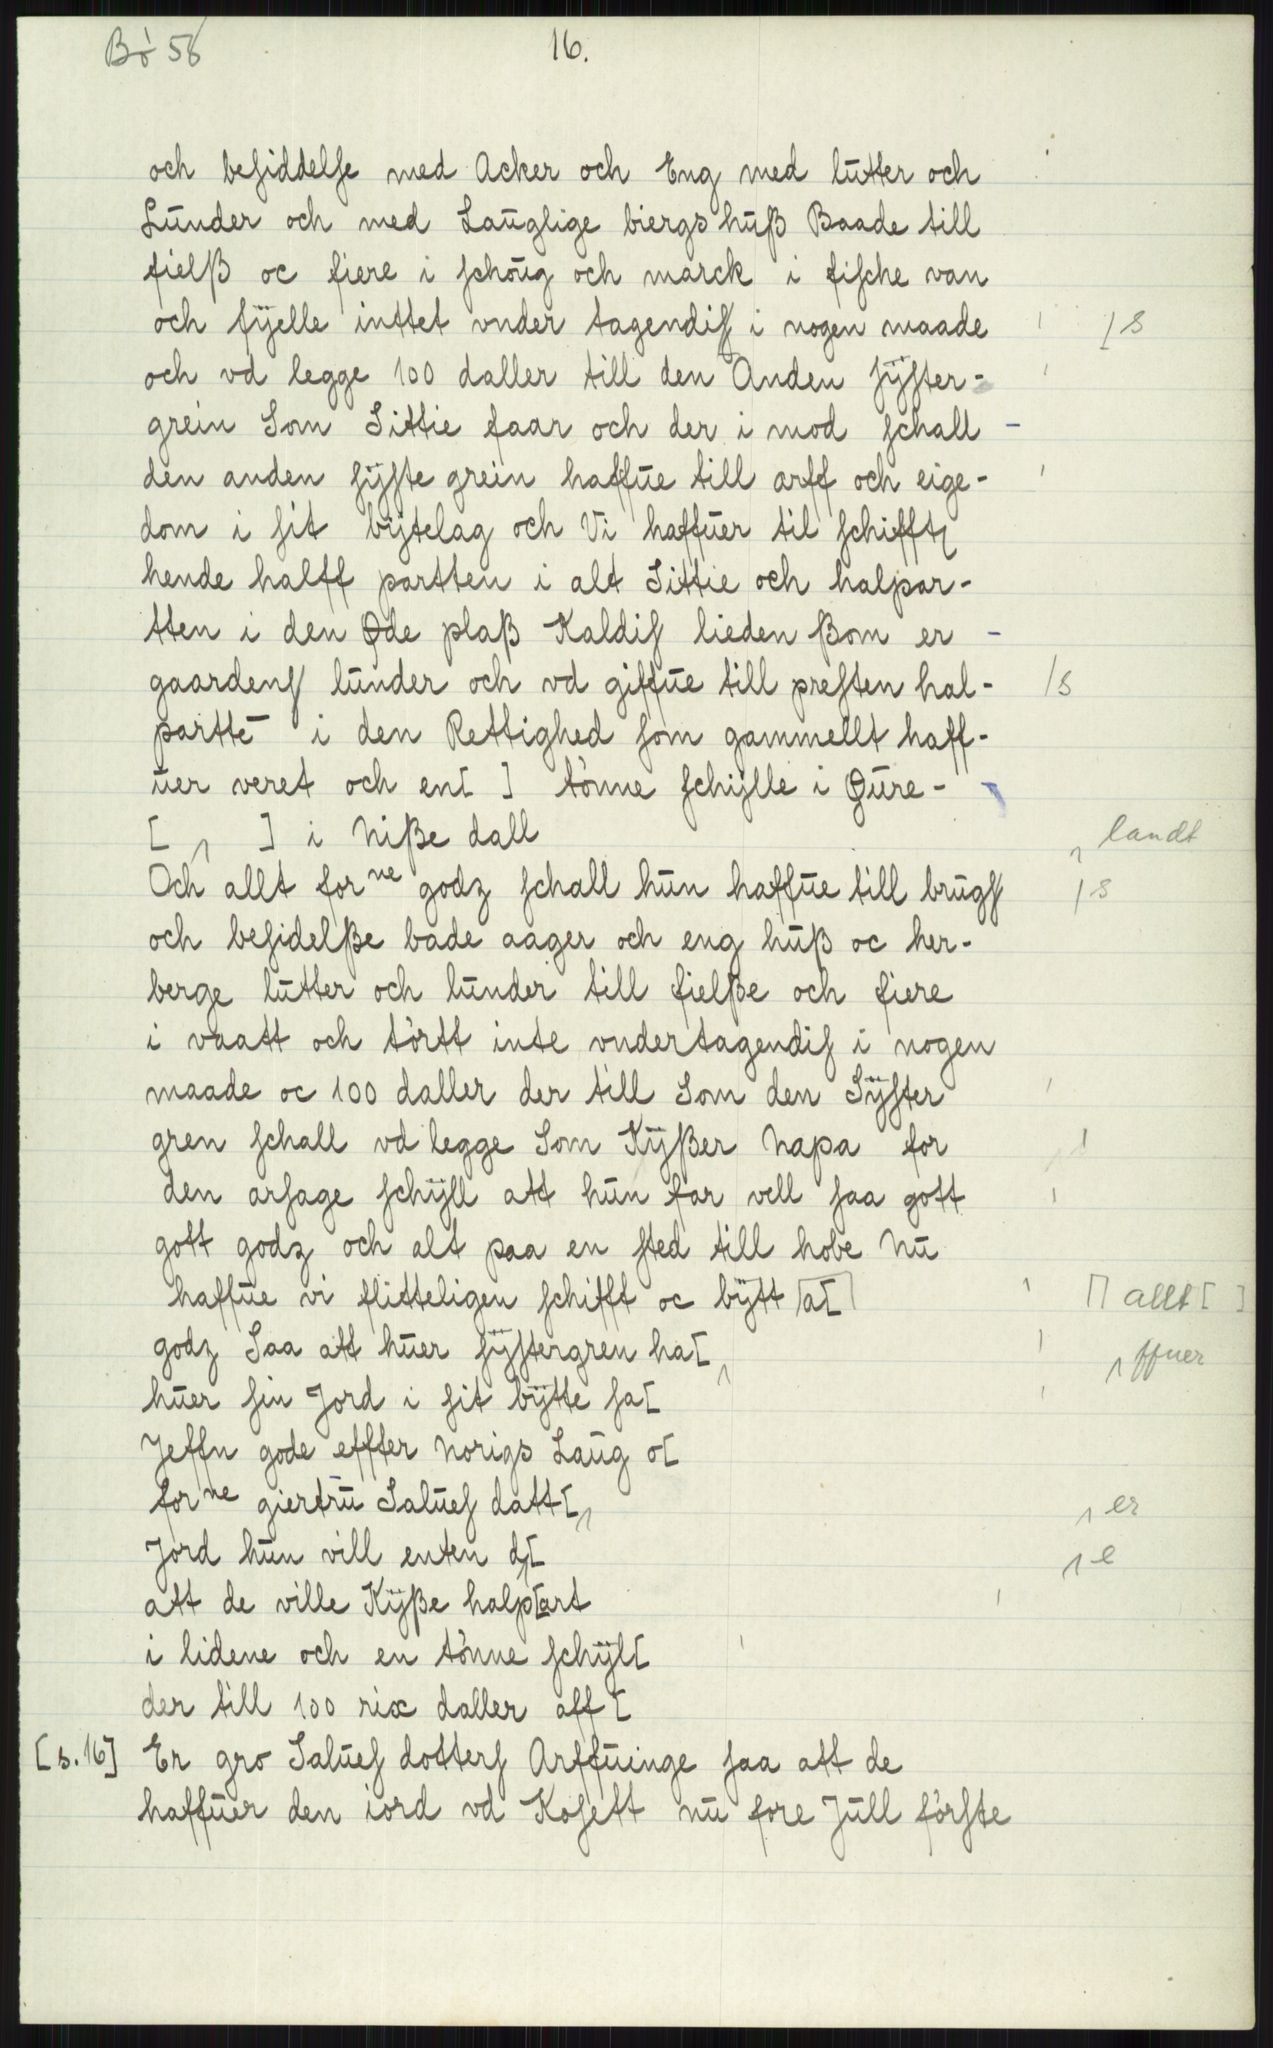 Bö 58
16.
och besiddelse med Acker och Eng med lutter och
Lunder och med Lauglige biergs huß Baade till
fielß oc fiere i schoug och marck i fische van
och fÿelle inttet vnder tagendis i nogen maade
[s
och vd legge 100 daller till den Anden sÿster-
grein Som Sittie faar och der i mod schall
den anden sÿste grein haffue till arff och eige-
dom i sit bÿtelag och Vi haffuer til schifft
hende halff partten i alt Sittie och halpar-
tten i den Øde plaß Kaldis lieden ßom er
gaardens lunder och vd giffue till presten hal-
/s
parttē i den Rettighed som gammellt haff-
uer veret och en[ ] tönne schÿlle i Øure-
[ ] i Niße dall
landt
Och allt forne godz schall hun haffue till brugs
/s
och besidelße bade aager och eng huß oc her-
berge lutter och lunder till fielße och fiere
i vaatt och törtt inte vndertagendis i nogen
maade oc 100 daller der till Som den Sÿster
gren schall vd legge Som Kÿßer Napa for
den arsage schÿll att hun far vell saa gott
gott godz och alt paa en sted till hobe Nu
haffue vi flitteligen schifft oc bÿtt a[
allt[ ]
godz Saa att huer sÿstergren ha[
ffuer
huer sin Jord i sit bÿtte sa[
Jeffn gode effter Norigs Laug o[
forne giertru Saluef datt[
er
Jord hun vill enten d[
e
att de ville Kÿße halp[art
i lidene och en tönne schÿl[
der till 100 rix daller aff [
[s. 16] Er gro Saluef dotters Arffuinge saa att de
haffuer den iord vd Kosett nu fore Jull förste